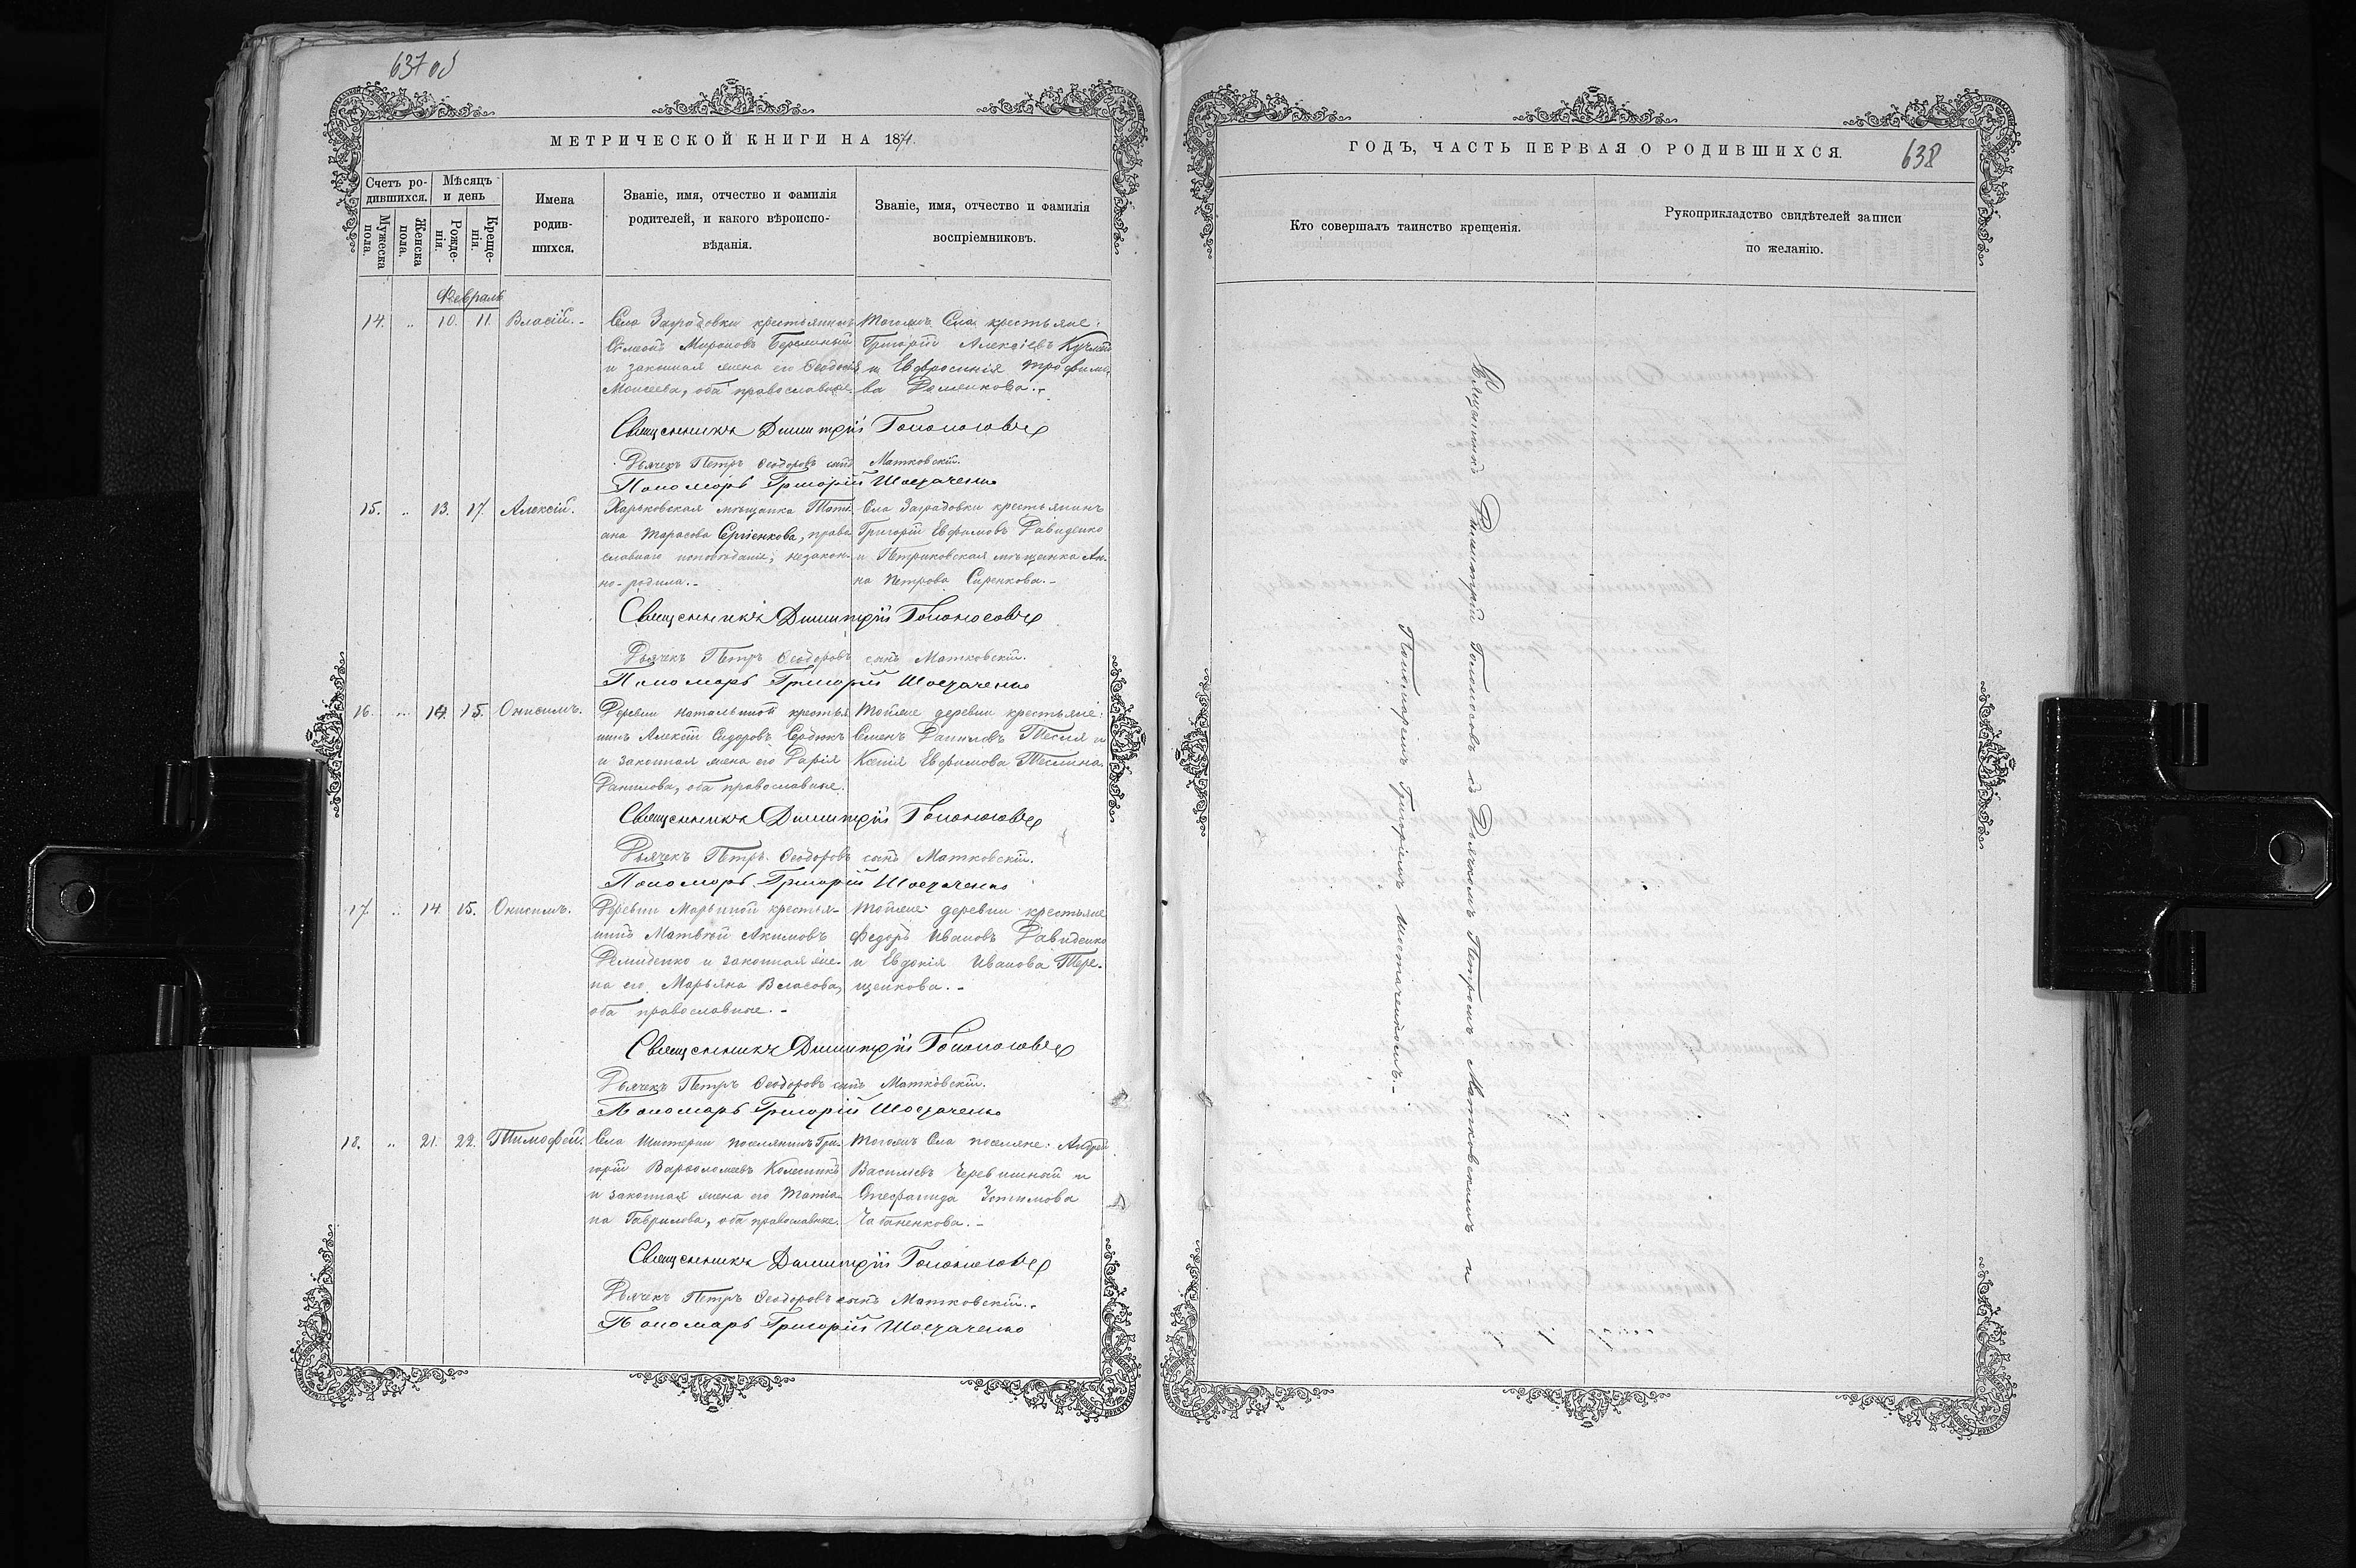 637 об
МЕТРИЧЕСКОЙ КНИГИ НА 1871.
Счетъ ро-
дившихся.
Мѣсяцъ
и день
Мужеска
пола.
Женска
пола.
Рожде-
нія.
Креще-
нія.
Имена
родив-
шихся.
Званіе, имя, отчество и фамилія
родителей, и какого вѣроиспо-
вѣданія.
Званіе, имя, отчество и фамилія
воспріемниковъ.
Февраль
14. „ 10. 11. Власій.
Села Заградовки крестьянинъ
Симеонъ Мироновъ
и законная жена его Феодосія
Моисеева, оба православные.
Тогожъ Села крестьяне:
Григорій Алексіевъ
и Евфросинія Трофимо-
ва
Священникъ Димитрій Голоносовъ
Дьячекъ Петръ Феодоровъ сынъ Матковскій.
Пономарь Григорій Шостаченко
15. „ 13. 17. Алексій.
Харьковская мѣщанка Тати-
ана Тарасова Сергіенкова, право-
славнаго исповѣданія, незакон-
но-родила.
Села Заградовки крестьянинъ
Григорій Евфимовъ Давиденко
и Петриковская мѣщанка Ан-
на Петрова Сиренкова.
Священникъ Димитрій Голоносовъ
Дьячекъ Петръ Феодоровъ сынъ Матковскій.
Пономарь Григорій Шостаченко
16. „ 14. 15. Онисимъ.
Деревни Натальиной крестья-
нинъ Алексій Сидоровъ Сердюкъ
и законная жена его Дарія
Данилова, оба православные.
Тойже деревни крестьяне:
Семенъ Даниловъ Тесля и
Ксенія Евфимова Теслина.
Священникъ Димитрій Голоносовъ
Дьячекъ Петръ Феодоровъ сынъ Матковскій.
Пономарь Григорій Шостаченко
17. „ 14. 15. Онисимъ.
Деревни Марьиной крестья-
нинъ Матвѣй Акимовъ
Демиденко и законная же-
на его Марьяна Власова,
оба православные.
Тойже деревни крестьяне
Федоръ Ивановъ Давиденко
и Евдокія Иванова Тере-
щенкова.
Священникъ Димитрій Голоносовъ
Дьячекъ Петръ Феодоровъ сынъ Матковскій.
Пономарь Григорій Шостаченко
18. „ 21. 22. Тимофей.
Села Шестерни поселянинъ Гри-
горій Варфоломеевъ Колесникъ
и законная жена его Татіа-
на Гаврилова, оба православные.
Тогожъ Села поселяне: Андрей
Васильевъ Черевишный и
Стефанида Устимова
Чабаненкова.
Священникъ Димитрій Голоносовъ
Дьячекъ Петръ Феодоровъ сынъ Матковскій.
Пономарь Григорій Шостаченко
ГОДЪ, ЧАСТЬ ПЕРВАЯ О РОДИВШИХСЯ.
638
Кто совершалъ таинство крещенія.
Рукоприкладство свидѣтелей записи
по желанію.
Священникъ Димитрій Голоносовъ съ Дьячкомъ Петромъ Матковскимъ и
Пономаремъ Григоріемъ Шостаченкомъ.